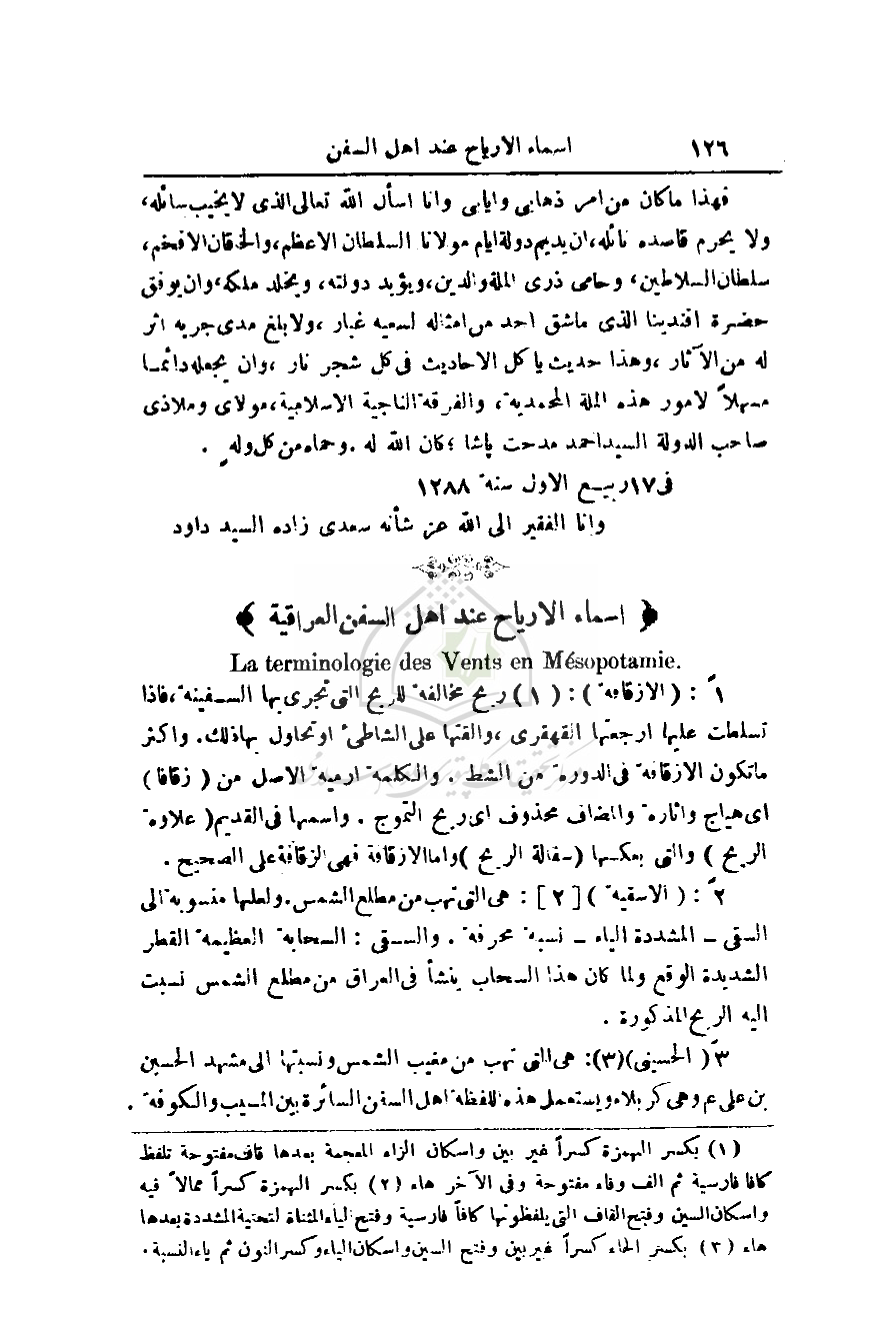 ١٢٦ اسماء الارياح عند اهل السفن
فهذا ماكان من امر ذهابي وايابي وانا اسأل الله تعالى الذى لايخيب سائله،
ولا يحرم قاصده نائله، ان يديم دولة ايام مولانا السلطان الاعظم، والخقان الافخم،
سلطان السلاطين، وحامى ذرى الملة والدين، ويؤيد دولته، ويخلد ملكه، وان يوفق
حضرة افندينا الذى ماشق احد من امثاله لسميه غبار، ولا بلغ مدى جريه اثر
له من الآثار، وهذا حديث ياكل الاحاديث فى كل شجر نار، وان يجعله دائمــا
مسهلاً لامور هذه الملة المحمدية، والفرقة الناجية الاسلامية، مولاى وملاذى
صاحب الدولة السيد احمد مدحت پاشا ؛كان الله له . وحماه من كل وله .
فى ١٧ ربيـع الاول سنة ١٢٨٨
وانا الفقير الى الله عز شأنه سعدى زاده السيد داود
﴿ اسماء الارياح عند اهل السفن العراقية ﴾
La terminologie des Vents en Mésopotamie.
١ً : ( الازقافة ) : ( ١ ) ريح مخالفة للريح التى تجرى بها السـفينة، فاذا
تسلطت عليها ارجعتها القهقرى، والقتها على الشاطئ اوتحاول بهاذلك. واكثر
ماتكون الازقافة فى الدورة من الشط . والكلمة ارمية الاصل من ( زقافا )
اى هياج واثارة والمضاف محذوف اى ريح التموج . واسمها فى القديم ( علاوة
الريح ) والتى بعكسها (سفالة الريح ) واما الازقافة فهى الزقافة على الصحيح .
٢ً : ( الاسقية ) [ ٢ ] : هى التى تهب من مطلع الشمس . ولعلها منسوبة الى
السقى ــ المشددة الياء ــ نسبة محرفة . والسـقى : السحابة العظيمة القطر
الشديدة الوقع ولما كان هذا السحاب ينشأ فى العراق من مطلع الشمس نسبت
اليه الريح المذكورة .
٣ً ( الحسينى)(٣): هى التى تهب من مغيب الشمس ونسبتها الى مشهد الحسين
بن على ع وهى كربلاء ويستعمل هذه اللفظة اهل السفن السائرة بين المسيب والكوفة .
(١) بكسر الهمزة كسراً غير بين واسكان الزاء المعجمة بعدها قاف مفتوحة تلفظ
كافا فارسية ثم الف وفاء مفتوحة وفى الآخر هاء (٢) بكسر الهمزة كسراً ممالاً فيه
واسكان السين وفتح القاف التى يلفظونها كافاً فارسية وفتح الياء المثناة لتحتية المشددة بعدها
هاء (٣) بكسر الحاء كسراً غير بين وفتح السين واسكان الياء وكسر النون ثم ياء النسبة .